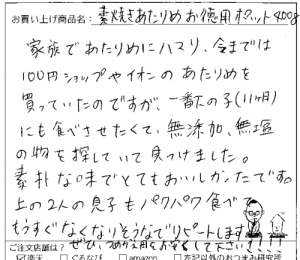 お買い上げ商品名: 素焼きあたりめお徳用ポット400g
家族であたりめにハマり、今までは
100円ショップやイオンのあたりめを
買っていたのですが、一番下の子(11ヶ月)
にも食べさせたくて、無添加、無塩
の物を探していて見つけました。
素朴な味でとてもおいしかったです。
上の2人の息子もパクパク食べて
もうすぐなくなりそうなのでリピートします
ご注文店舗は? ぜひ、つめかえ用も お安くして下さい
楽天 ぐるなび amazon 左記以外のおつまみ研究所